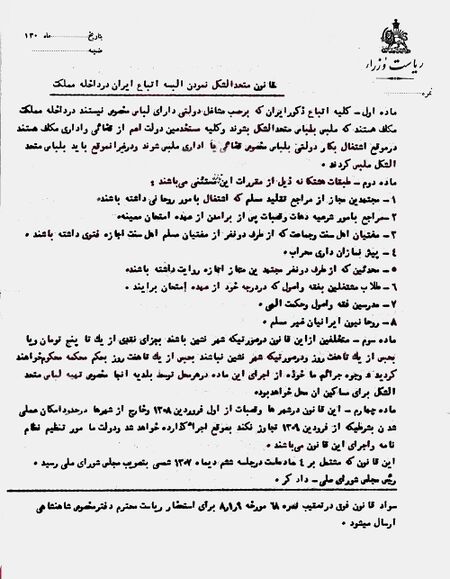 بتاریخ ........ ماه ۱۳۰
ضمیمه
ریاست وزراء
نمره
قانون متحدالشکل نمودن البسه اتباع ایران در داخله مملکت
ماده اول – کلیه اتباع ذکور ایران که برحسب مشاغل دولتی دارای لباس مخصوص نیستند در داخله مملکت
مکلف هستند که ملبس بلباس متحدالشکل بشوند و کلیه مستخدمین دولت اعم از قضائی و اداری مکلف هستند
در موقع اشتغال بکار دولتی بلباس مخصوص قضائی یا اداری ملبس شوند و در غیر آنموقع باید بلباس متحد
الشکل ملبس گردند .
ماده دوم – طبقات هشتگانه ذیل از مقررات این مستثنی می‌باشند :
۱ – مجتهدین مجاز از مراجع تقلید مسلم که اشتغال بامور روحانی داشته باشند .
۲ – مراجع بامور شرعیه دهات و قصبات پس از برآمدن از عهده امتحان معینه .
۳ – مفتیان اهل سنت وجماعت که از طرف دو نفر از مفتیان مسلم اهل سنت اجازه فتوی داشته باشند .
۴ – پیش نمازان دارای محراب .
۵ – محدثین که از طرف دو نفر مجتهدین مجاز اجازه روایت داشته باشند .
۶ – طلاب مشتغلین بفقه واصول که در درجه خود از عهده امتحان برایند .
۷ – مدرسین فقه واصول وحکمت الهی .
۸ – روحانیون ایرانیان غیر مسلم .
ماده سوم – متخلفین از این قانون در صورتیکه شهر نشین باشند بجزای نقدی از یک تا پنج تومان ویا
بحبس از یک تا هفت روز ودر صورتیکه شهر نشین نباشند بحبس از یک تا هفت روز بحکم محکمه محکوم خواهند
گردید وجوه جرائم ماخوذه از اجرای این ماده در هر محل توسط بلدیه آنجا مخصوص تهیه لباس متحد
الشکل برای مساکین آن محل خواهد بود .
ماده چهارم – این قانون در شهرها وقصبات از اول فروردین ۱۳۰۸ وخارج از شهرها در حدود امکان عملی
شدن بشرطیکه از فروردین ۱۳۰۹ تجاوز نکند بموقع اجرا گذارده خواهد شد ودولت مامور تنظیم نظام
نامه واجرای این قانون می‌باشند .
این قانون که مشتمل بر ۴ ماده است در جلسه ششم دیماه ۱۳۰۷ شمسی بتصویب مجلس شورای ملی رسید .
رئیس مجلس شورای ملی – دادگر
سواد قانون فوق در تعقیب نمره ۶۸ مورخه ۸٫۱٫۹ برای استحضار ریاست محترم دفتر مخصوص شاهنشاهی
ارسال میشود .